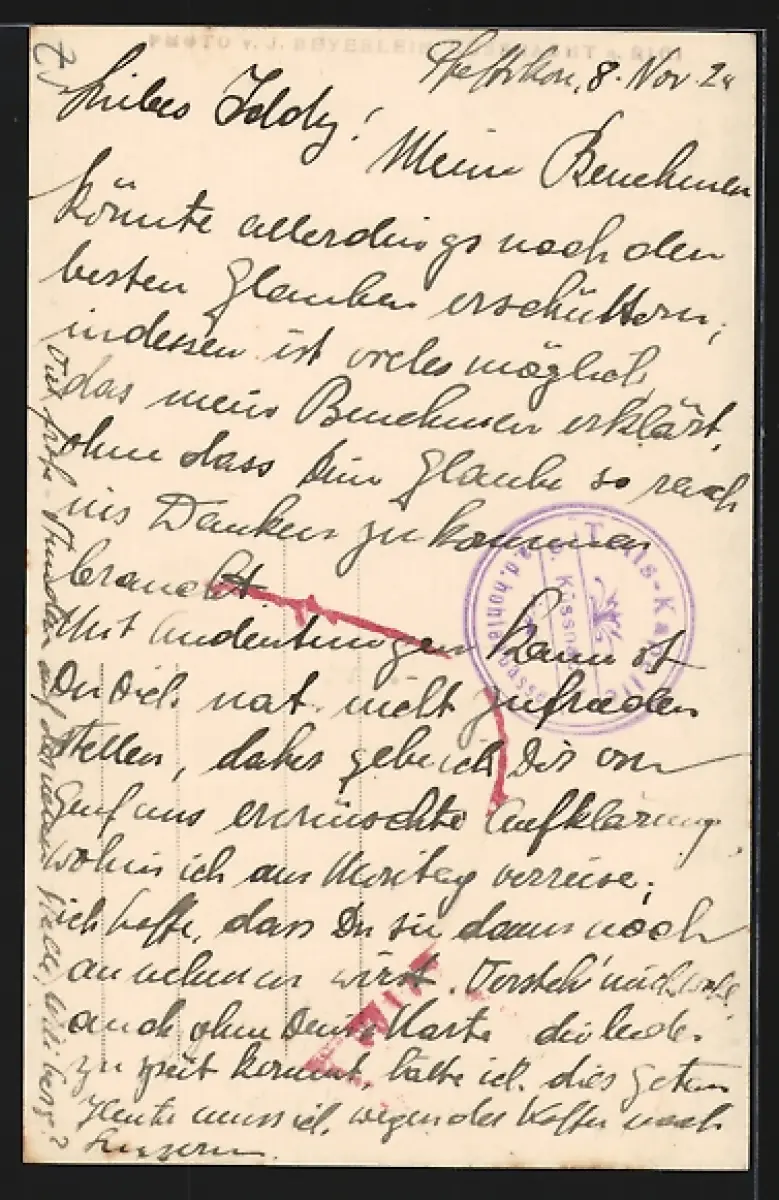 PHOTO v. J. BEYERLEIN
8. Nov. 2
Liebes Iddy!
Mein Benehmen
könnte allerdings noch den
besten Glauben erschüttern,
indessen ist vieles möglich,
das mein Benehmen erklärt,
ohne dass Dein Glaube so rasch
ins Wanken zu kommen
braucht.
Mit Andeutungen kannst
Du Dich nat. nicht zufrieden
stellen, daher gebe ich Dir von
Genf aus erwünschte Aufklärung,
wohin ich am Montag verreise;
ich hoffe, dass Du sie dann noch
annehmen wirst. Versteh' mich
auch ohne Deine Karte die leider
zu spät kommt, hätte ich dies getan
Heute muss ich wegen der Koffer nach
Luzern.
Viel frohe Stunden auf der neuen Stelle,
Tells-Kapelle
Küssnacht